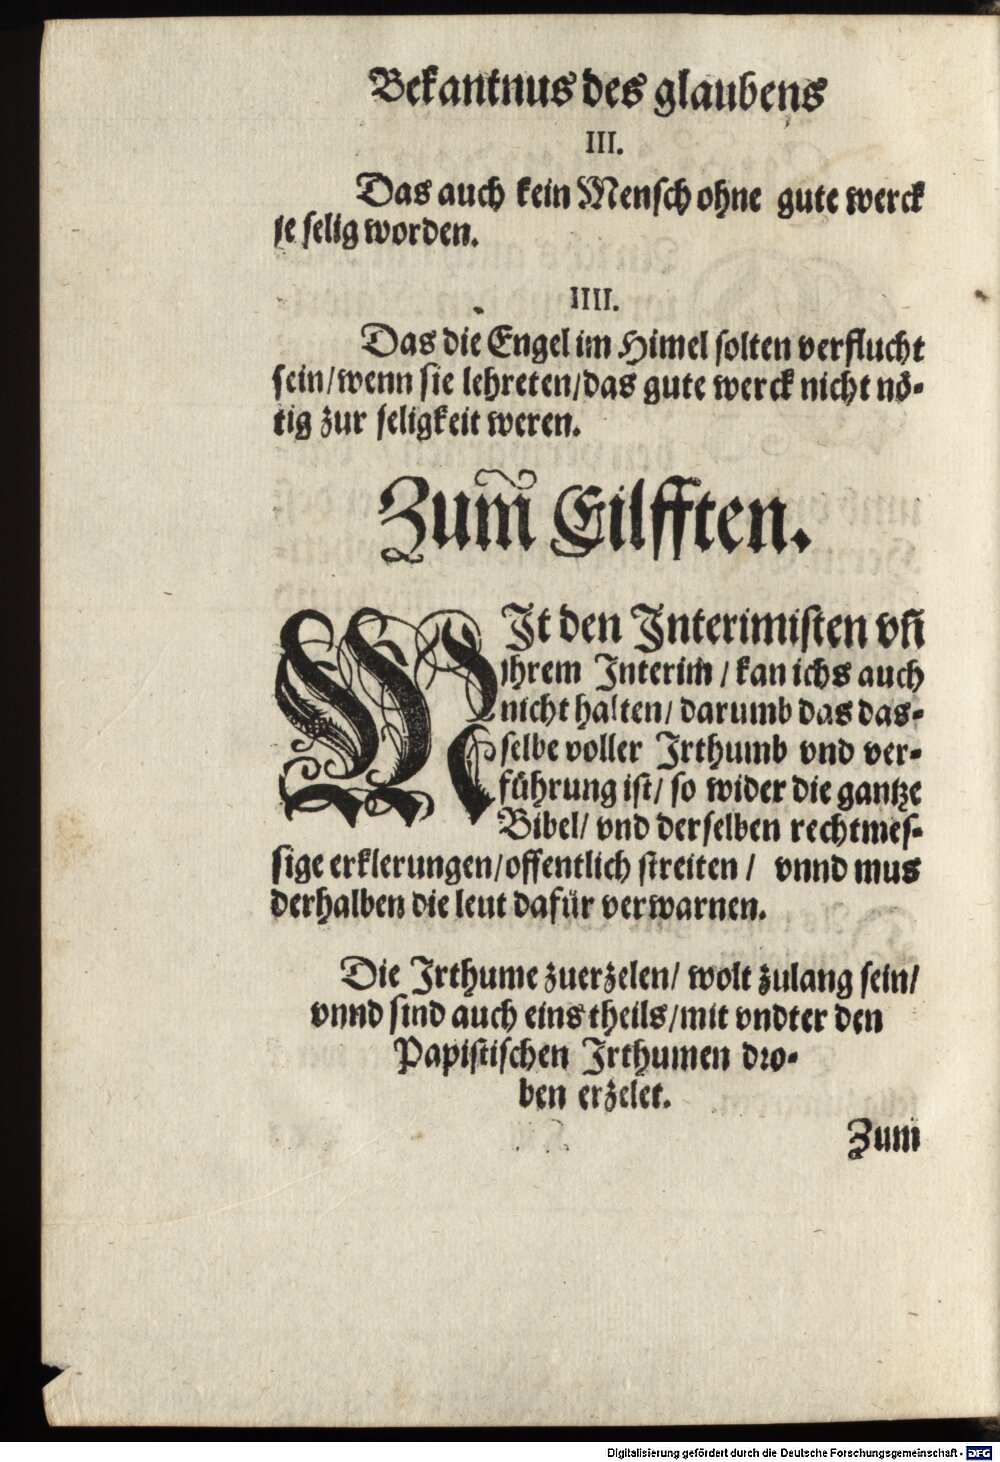 Bekantnus des glaubens
III.
Das auch kein Menſch ohne gute werck
je ſelig worden.
IIII.
Das die Engel im Himel ſolten verflucht
ſein/wenn ſie lehreten/das gute werck nicht nö-
tig zur ſeligkeit weren.
Zum̃ Eilfften.
MIt den Interimiſten vn̄
ihrem Interim̃ / kan ichs auch
nicht halten/ darumb das das-
ſelbe voller Irthumb vnd ver-
führung iſt/ ſo wider die gantze
Bibel/ vnd derſelben rechtmeſ-
ſige erklerungen/offentlich ſtreiten / vnnd mus
derhalben die leut dafür verwarnen.
Die Irthume zuerzelen/ wolt zulang ſein/
vnnd ſind auch eins theils/mit vndter den
Papiſtiſchen Irthumen dꝛo-
ben erzelet.
Zum
Digitalisierung gefördert durch die Deutsche Forschungsgemeinschaft - DFG